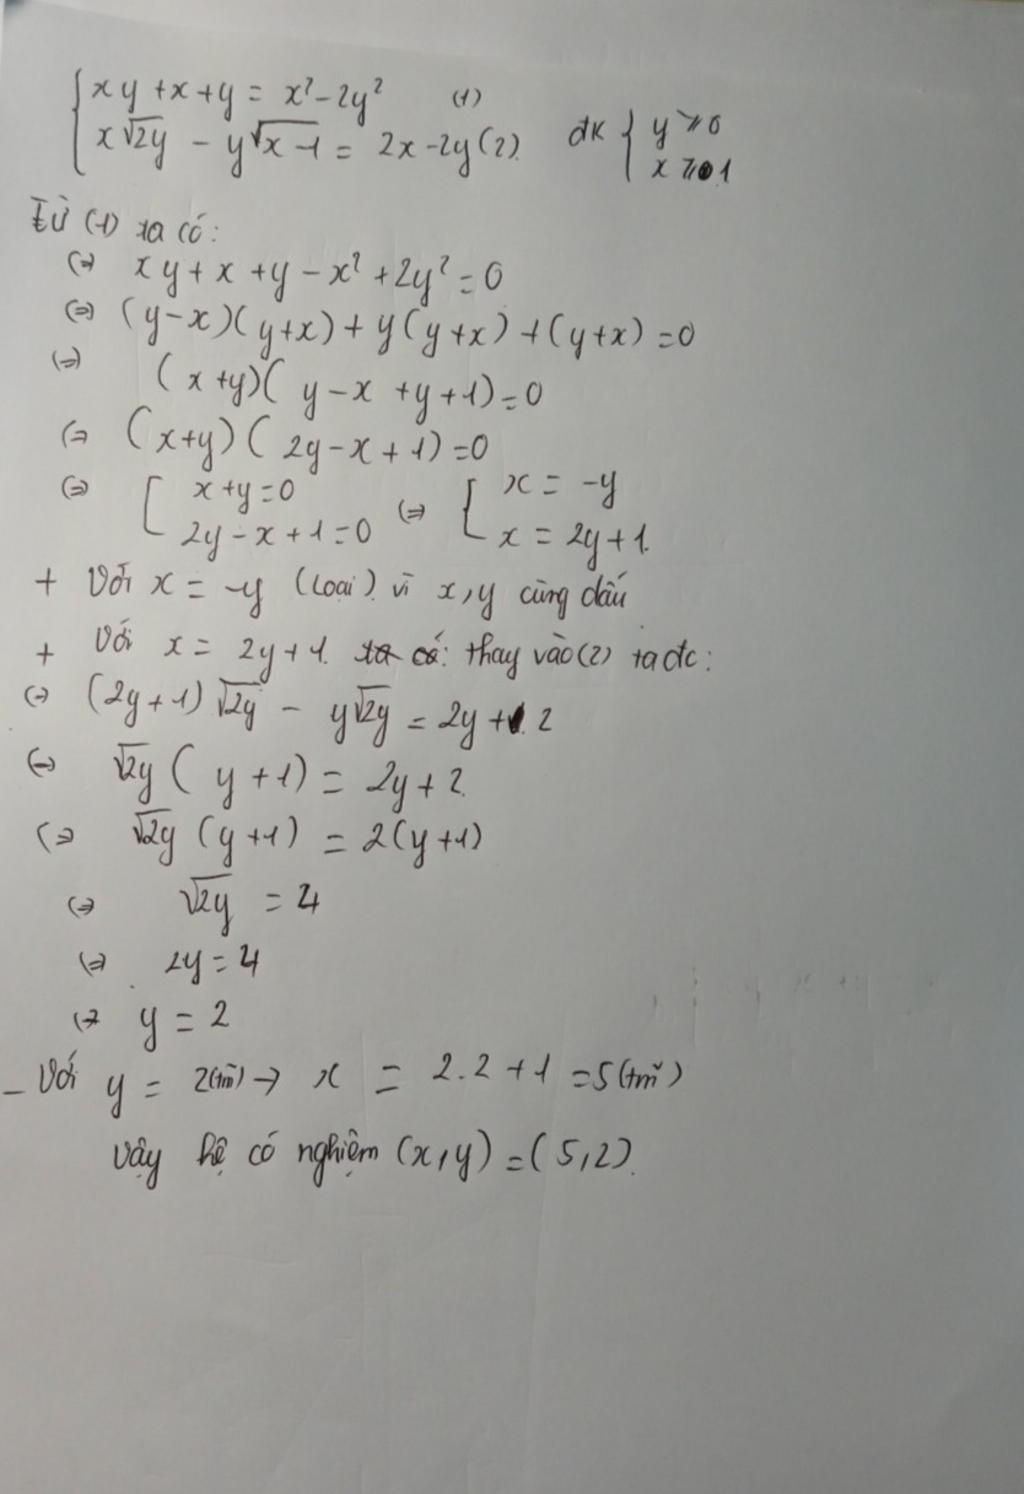 { xy + x + y = x² - 2y² (1)
{ x√2y - y√x-1 = 2x - 2y (2). đk { y ≥ 0
x ≥ 1
Từ (1) ta có:
(=) xy + x + y - x² + 2y² = 0
(=) (y - x)(y + x) + y(y + x) + (y + x) = 0
(=) (x + y)(y - x + y + 1) = 0
(=) (x + y)(2y - x + 1) = 0
(=) [ x + y = 0 (=) [ x = -y
2y - x + 1 = 0 x = 2y + 1.
+ Với x = -y (loại). vì x, y cùng dấu
+ Với x = 2y + 1. ta có: thay vào (2) ta đc:
(=) (2y + 1)√2y - y√2y = 2y + 2
(=) √2y (y + 1) = 2y + 2.
(=) √2y (y + 1) = 2(y + 1)
(=) √2y = 2
(=) 2y = 4
(=) y = 2
- Với y = 2(tm) → x = 2.2 + 1 = 5(tm)
Vậy hệ có nghiệm (x, y) = (5, 2).